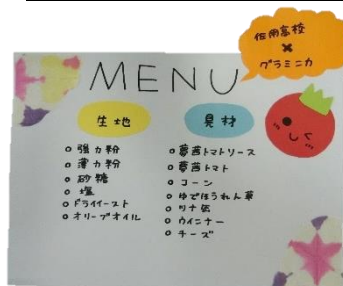 佐用高校
×
グラミニカ
MENU
生地
○強力粉
○薄力粉
○砂糖
○塩
○ドライイースト
○オリーブオイル
具材
○夢茜トマトソース
○夢茜トマト
○コーン
○ゆでほうれん草
○ツナ缶
○ウインナー
○チーズ